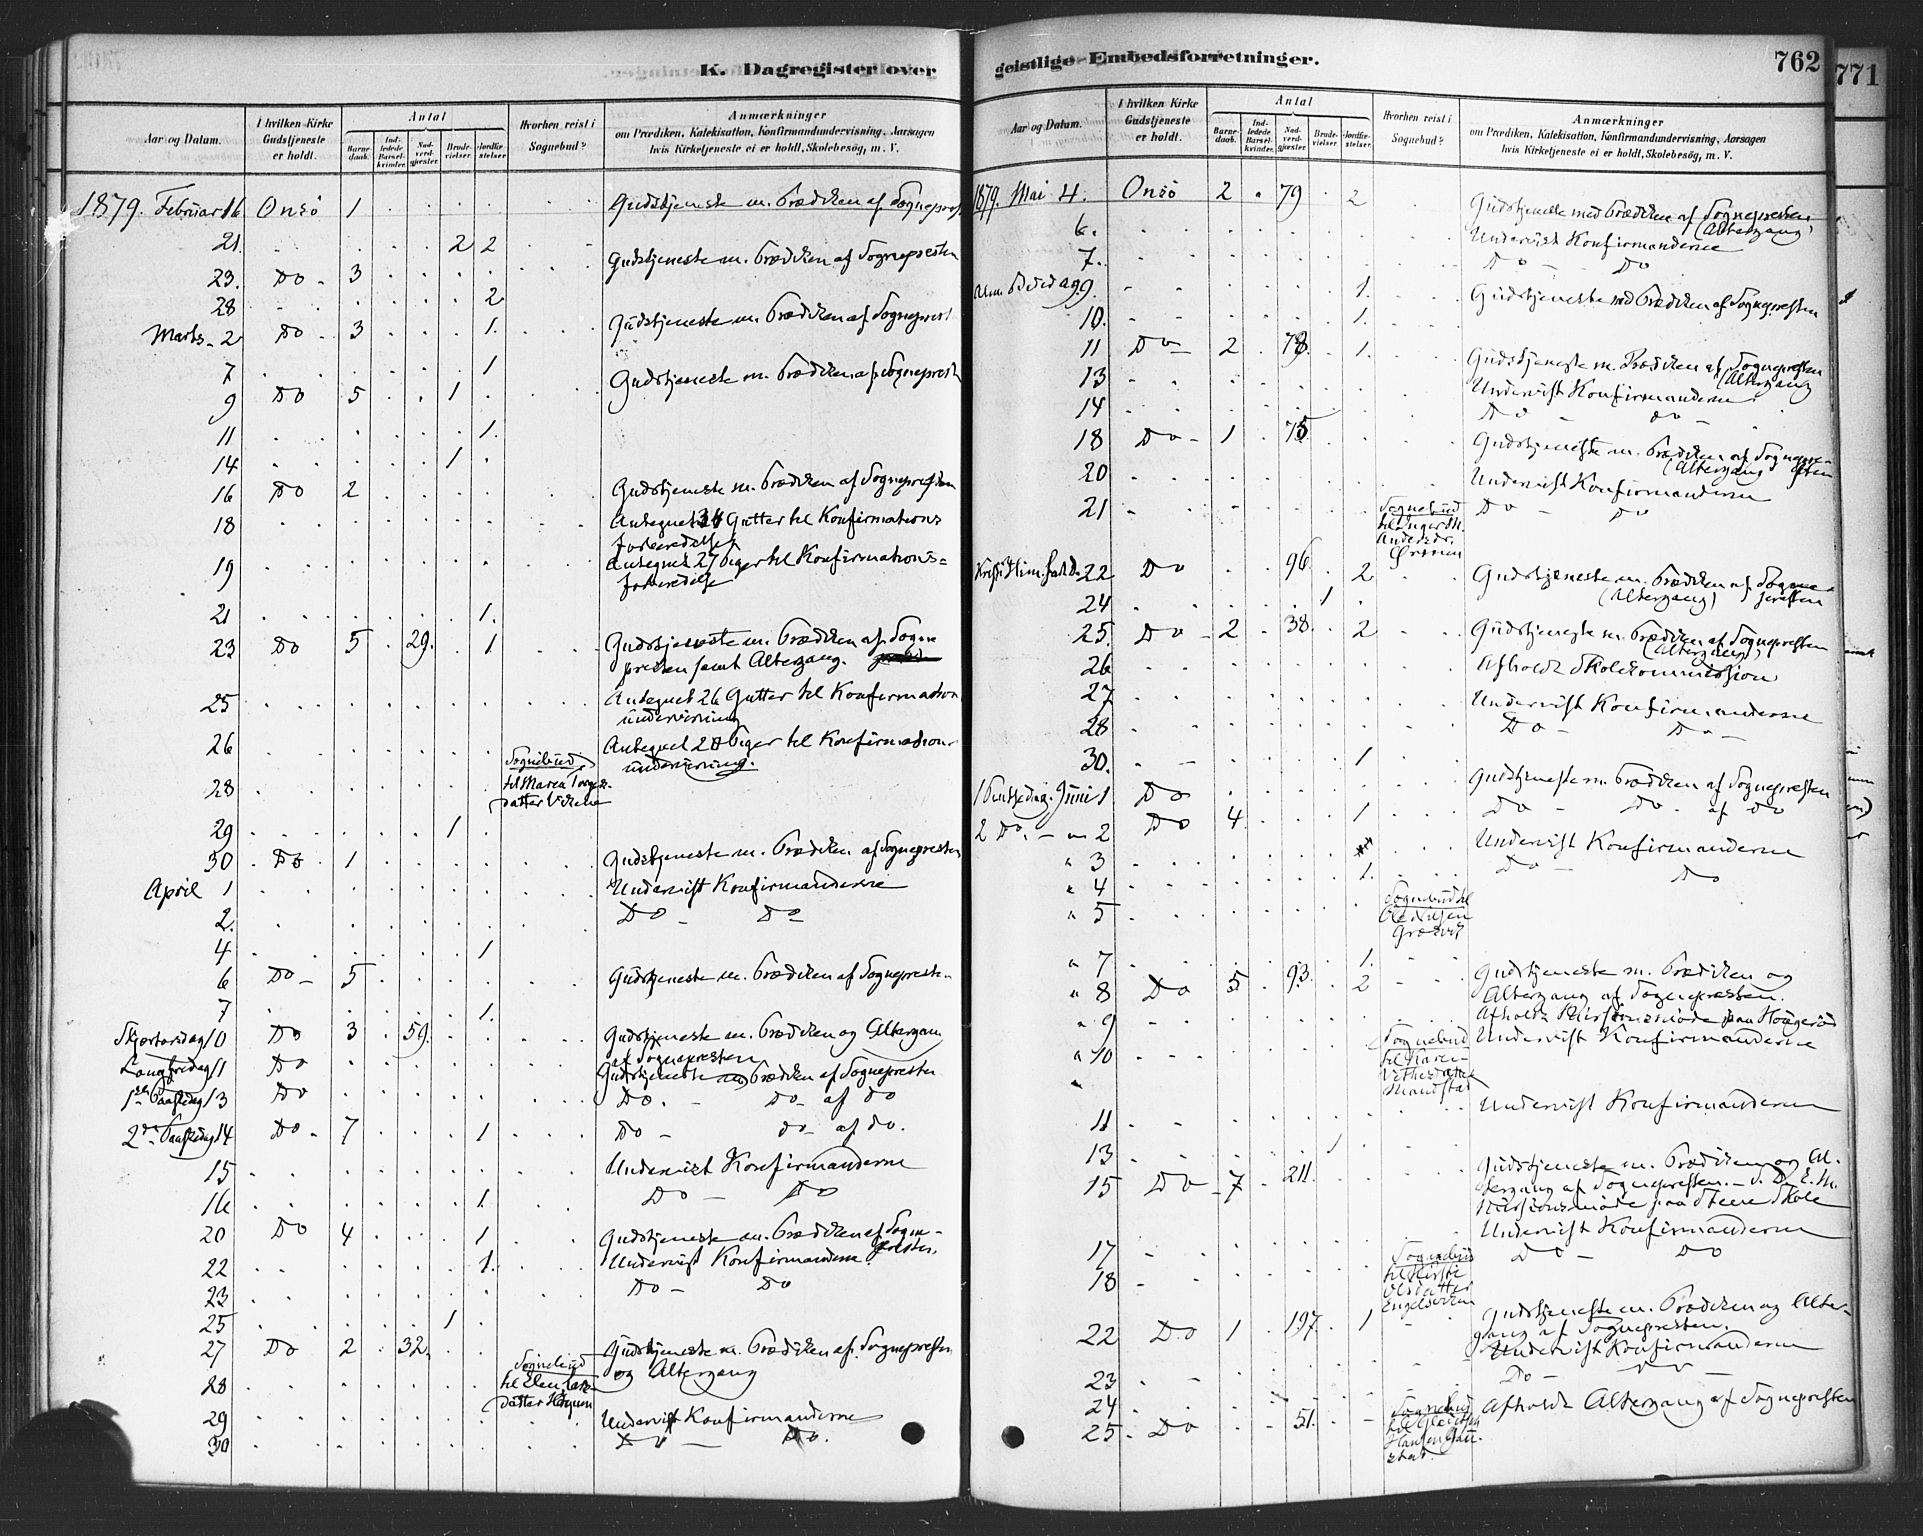 K. Dagregister over
Aar og Datum.
I hvilken Kirke Gudstjeneste er holdt.
Antal
Barnedaab.
Indledede Barselkvinder.
Nadverdgjæster.
Brudevielser.
Jordfæstelser.
Hvorhen reist i Sognebud?
Anmærkninger
om Prædiken, Katekisation, Konfirmandundervisning, Aarsagen
hvis Kirketjeneste ei er holdt, Skolebesøg, m. V.
1879. Februar 16 Onsö 1 Gudstjeneste m. Prædiken af Sognepræst
21. 2 2
23. Do 3 Gudstjeneste m. Prædiken af Sognepresten
28 2
Marts 2 Do 3 1. Gudstjeneste m. Prædiken af Sognepresten
7 1
9 Do 5 1 Gudstjeneste m. Prædiken af Sognepresten
11 1.
14 1
16 Do 2 Gudstjeneste m. Prædiken af Sognepresten
18 Antegnet 34 Gutter til Konfirmations
forberedelse
19 Antegnet 27 Piger til Konfirmations=
forberedelse
21 1.
23 Do 5 29. 1 Gudstjeneste m. Prædiken af Sogne
presten samt Altergang.
25 Antegnet 26 Gutter til Konfirmation
undervisning
26 Antegnet 28 Piger til Konfirmations
undervisning.
28 Sognebud
til Maren
datter
29 1
30 Do 1 Gudstjeneste m. Prædiken af Sognepresten
April 1 Undervist Konfirmanderne
2. Do Do
4 1
6 Do 5 Gudstjeneste m. Prædiken af Sognepresten
7 1.
Skjærtorsdag 10 Do 3 59. Gudstjeneste m. Prædiken og Altergang
af Sognepresten
Langfredag 11 Do Gudstjeneste m Prædiken af Sognepresten
1ste Paaskedag 13 Do Do. Do af Do
2den Paaskedag 14 Do 7 1 Do do af do.
15 Undervist Konfirmanderne
16 1. Do Do
20 Do 4 1 Gudstjeneste m. Prædiken af Sogne-
presten.
22 1. Undervist Konfirmanderne
23 Do Do
25 1
27 Do 2 32. Gudstjeneste m. Prædiken af Sognepresten
og Altergang
28 Sognebud
til Elen
datter
29 Undervist Konfirmanderne
30 Do Do.
geistlige Embedsforretninger.
762
771
Aar og Datum.
I hvilken Kirke Gudstjeneste er holdt.
Antal
Barnedaab.
Indledede Barselkvinder.
Nadverdgjæster.
Brudevielser.
Jordfæstelser.
Hvorhen reist i Sognebud?
Anmærkninger
om Prædiken, Katekisation, Konfirmandundervisning, Aarsagen
hvis Kirketjeneste ei er holdt, Skolebesøg, m. V.
1879. Mai 4. Onsö 2 79 2 Gudstjeneste med Prædiken af Sognepresten
(Altergang)
6. Undervist Konfirmanderne
7. Do Do
Alm. Bededag 9. 1. Gudstjeneste med Prædiken af Sognepresten
10. 1.
11 Do 2 78. 1. Gudstjeneste m. Prædiken af Sognepresten
(Altergang
13 Undervist Konfirmanderne
14 Do do
18 Do 1 75. Gudstjeneste m. Prædiken af Sognepre-
(Altergang sten
20 Undervist Konfirmanderne
21 Sognebud Do Do
til Inger M.
Andersdr.
Kristi Himmelfartsd. 22 Do 96. 2 Gudstjeneste m. Prædiken af Sogne-
(Altergang) presten
24 1
25. Do 2 38. 2 Gudstjeneste m. Prædiken af Sognepresten
(Altergang)
26 Afholdt Skolekommission
27 Undervist Konfirmanderne
28 Do Do
30. 1
1 Pintsedag. Juni 1 Do Gudstjeneste m. Prædiken af Sognepresten
2 Do. 2 Do 4 1 Do Do af Do
3 Undervist Konfirmanderne
4 1. Do Do
5 Sognebud til
Ole
7 1.
8 Do 5 93. 2 Gudstjeneste m. Prædiken og
Altergang af Sognepresten.
9 Afholdt Missionsmöde paa
10 Sognebud Undervist Konfirmanderne
til Karen
11 Undervist Konfirmanderne
13 1
15 Do 7 211. Gudstjeneste m. Prædiken og Al-
tergang af Sognepresten.
Missionsmöde paa Steene Skole
17 Undervist Konfirmanderne
18 Sognebud Do Do
til
Olsdatter
Engelsviken
22 Do 1 197 1 Gudstjeneste m. Prædiken og Alter-
gang af Sognepresten.
23 Undervist Konfirmanderne
24 Do Do
25 Do 51. Sognebud Afholdt Altergang af Sognepresten
til
Hansen